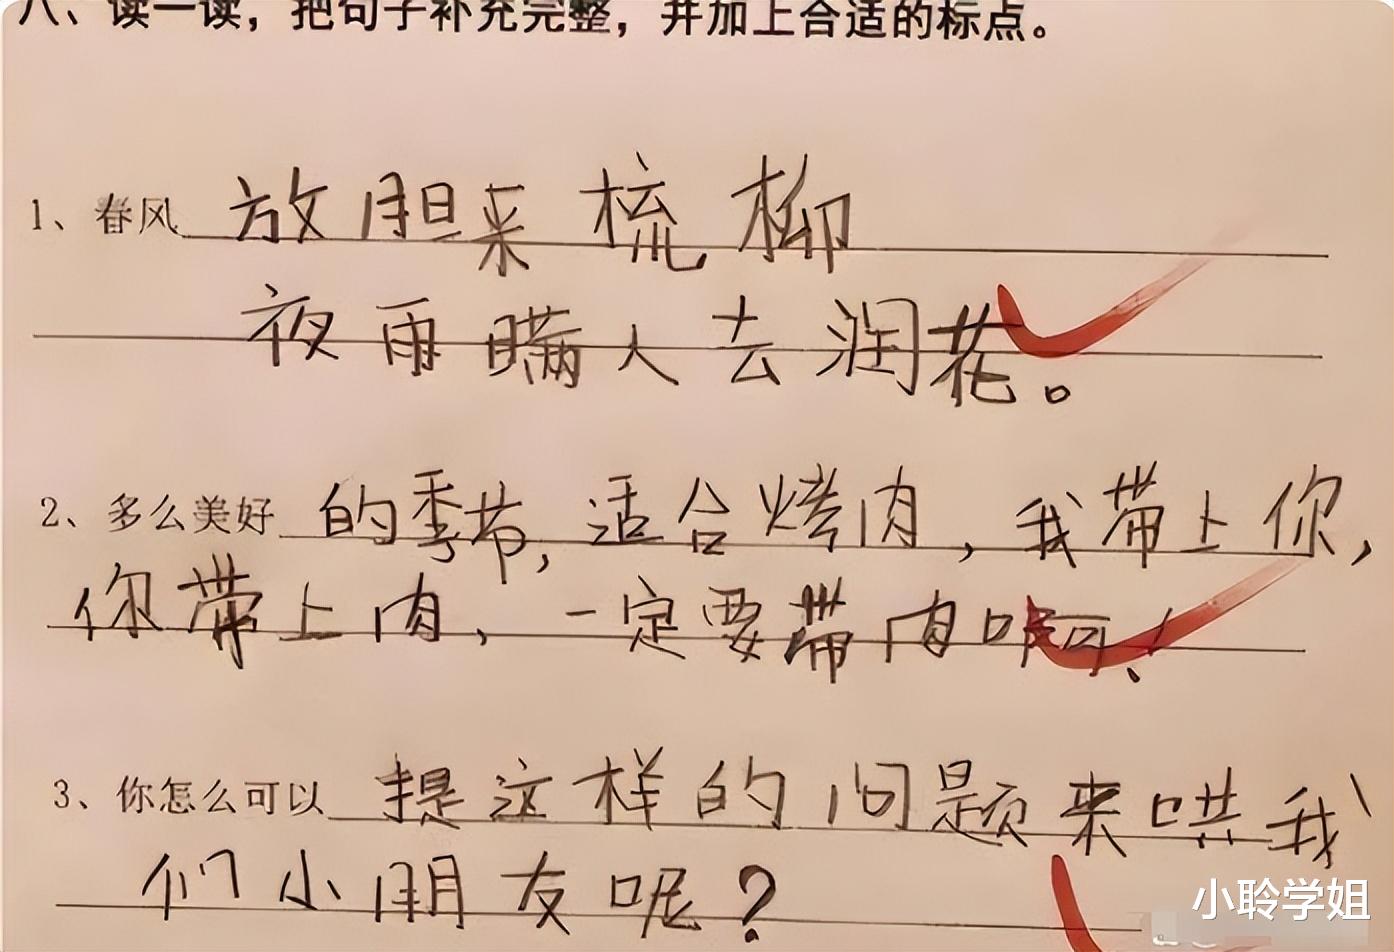 八、读一读，把句子补充完整，并加上合适的标点。
1、春风放胆来梳柳
夜雨瞒人去润花。
2、多么美好的季节，适合烤肉，我带上你，
你带上肉，一定要带肉啊！
3、你怎么可以提这样的问题来哄我
们小朋友呢？
小聆学姐